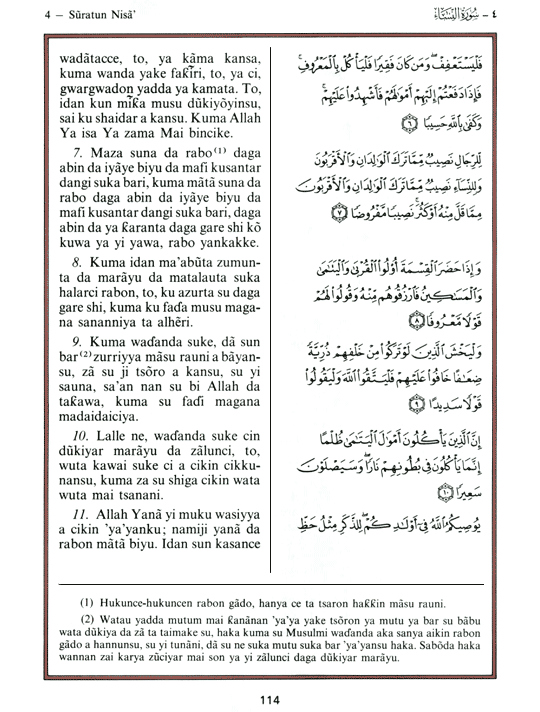 4 – Sūratun Nisā’
٤ – سُورَةُ النِّسَاءِ
wadātacce, to, ya kāma kansa,
kuma wanda yake faƙĩri, to, ya ci,
gwargwadon yadda ya kamata. To,
idan kun mĩƙa musu dũkiyõyinsu,
sai ku shaidar a kansu. Kuma Allah
Ya isa Ya zama Mai bincike.
7. Maza suna da rabo(1) daga
abin da iyãye biyu da mafi kusantar
dangi suka bari, kuma mãtã suna da
rabo daga abin da iyãye biyu da
mafi kusantar dangi suka bari, daga
abin da ya ƙaranta daga gare shi kõ
kuwa ya yi yawa, rabo yankakke.
8. Kuma idan ma'abũta zumun-
ta da marãyu da matalauta suka
halarci rabon, to, ku azurta su daga
gare shi, kuma ku faɗa musu maga-
na sananniya ta alhẽri.
9. Kuma waɗanda suke, dã sun
bar(2) zurriyya mãsu rauni a bãyan-
su, zã su ji tsõro a kansu, su yi
sauna, sa'an nan su bi Allah da
taƙawa, kuma su faɗi magana
madaidaiciya.
10. Lalle ne, waɗanda suke cin
dũkiyar marãyu da zãlunci, to,
wuta kawai suke ci a cikin cikku-
nansu, kuma za su shiga cikin wata
wuta mai tsanani.
11. Allah Yanã yi muku wasiyya
a cikin 'ya'yanku; namiji yanã da
rabon mãtã biyu. Idan sun kasance
فَلْيَسْتَعْفِفْ وَمَن كَانَ فَقِيرًا فَلْيَأْكُلْ بِالْمَعْرُوفِ
فَإِذَا دَفَعْتُمْ إِلَيْهِمْ أَمْوَالَهُمْ فَأَشْهِدُوا عَلَيْهِمْ
وَكَفَىٰ بِاللَّهِ حَسِيبًا ٦
لِّلرِّجَالِ نَصِيبٌ مِّمَّا تَرَكَ الْوَالِدَانِ وَالْأَقْرَبُونَ
وَلِلنِّسَاءِ نَصِيبٌ مِّمَّا تَرَكَ الْوَالِدَانِ وَالْأَقْرَبُونَ
مِمَّا قَلَّ مِنْهُ أَوْ كَثُرَ نَصِيبًا مَّفْرُوضًا ٧
وَإِذَا حَضَرَ الْقِسْمَةَ أُولُو الْقُرْبَىٰ وَالْيَتَامَىٰ
وَالْمَسَاكِينُ فَارْزُقُوهُم مِّنْهُ وَقُولُوا لَهُمْ
قَوْلًا مَّعْرُوفًا ٨
وَلْيَخْشَ الَّذِينَ لَوْ تَرَكُوا مِنْ خَلْفِهِمْ ذُرِّيَّةً
ضِعَافًا خَافُوا عَلَيْهِمْ فَلْيَتَّقُوا اللَّهَ وَلْيَقُولُوا
قَوْلًا سَدِيدًا ٩
إِنَّ الَّذِينَ يَأْكُلُونَ أَمْوَالَ الْيَتَامَىٰ ظُلْمًا
إِنَّمَا يَأْكُلُونَ فِي بُطُونِهِمْ نَارًا وَسَيَصْلَوْنَ
سَعِيرًا ١٠
يُوصِيكُمُ اللَّهُ فِي أَوْلَادِكُمْ لِلذَّكَرِ مِثْلُ حَظِّ
(1) Hukunce-hukuncen rabon gãdo, hanya ce ta tsaron haƙƙin mãsu rauni.
(2) Watau yadda mutum mai ƙanãnan 'ya'ya yake tsõron ya mutu ya bar su bãbu
wata dũkiya da zã ta taimake su, haka kuma su Musulmi waɗanda aka sanya aikin rabon
gãdo a hannunsu, su yi tunãni, dã su ne suka mutu suka bar 'ya'yansu haka. Sabõda haka
wannan zai karya zũciyar mai son ya yi zãlunci daga dũkiyar marãyu.
114